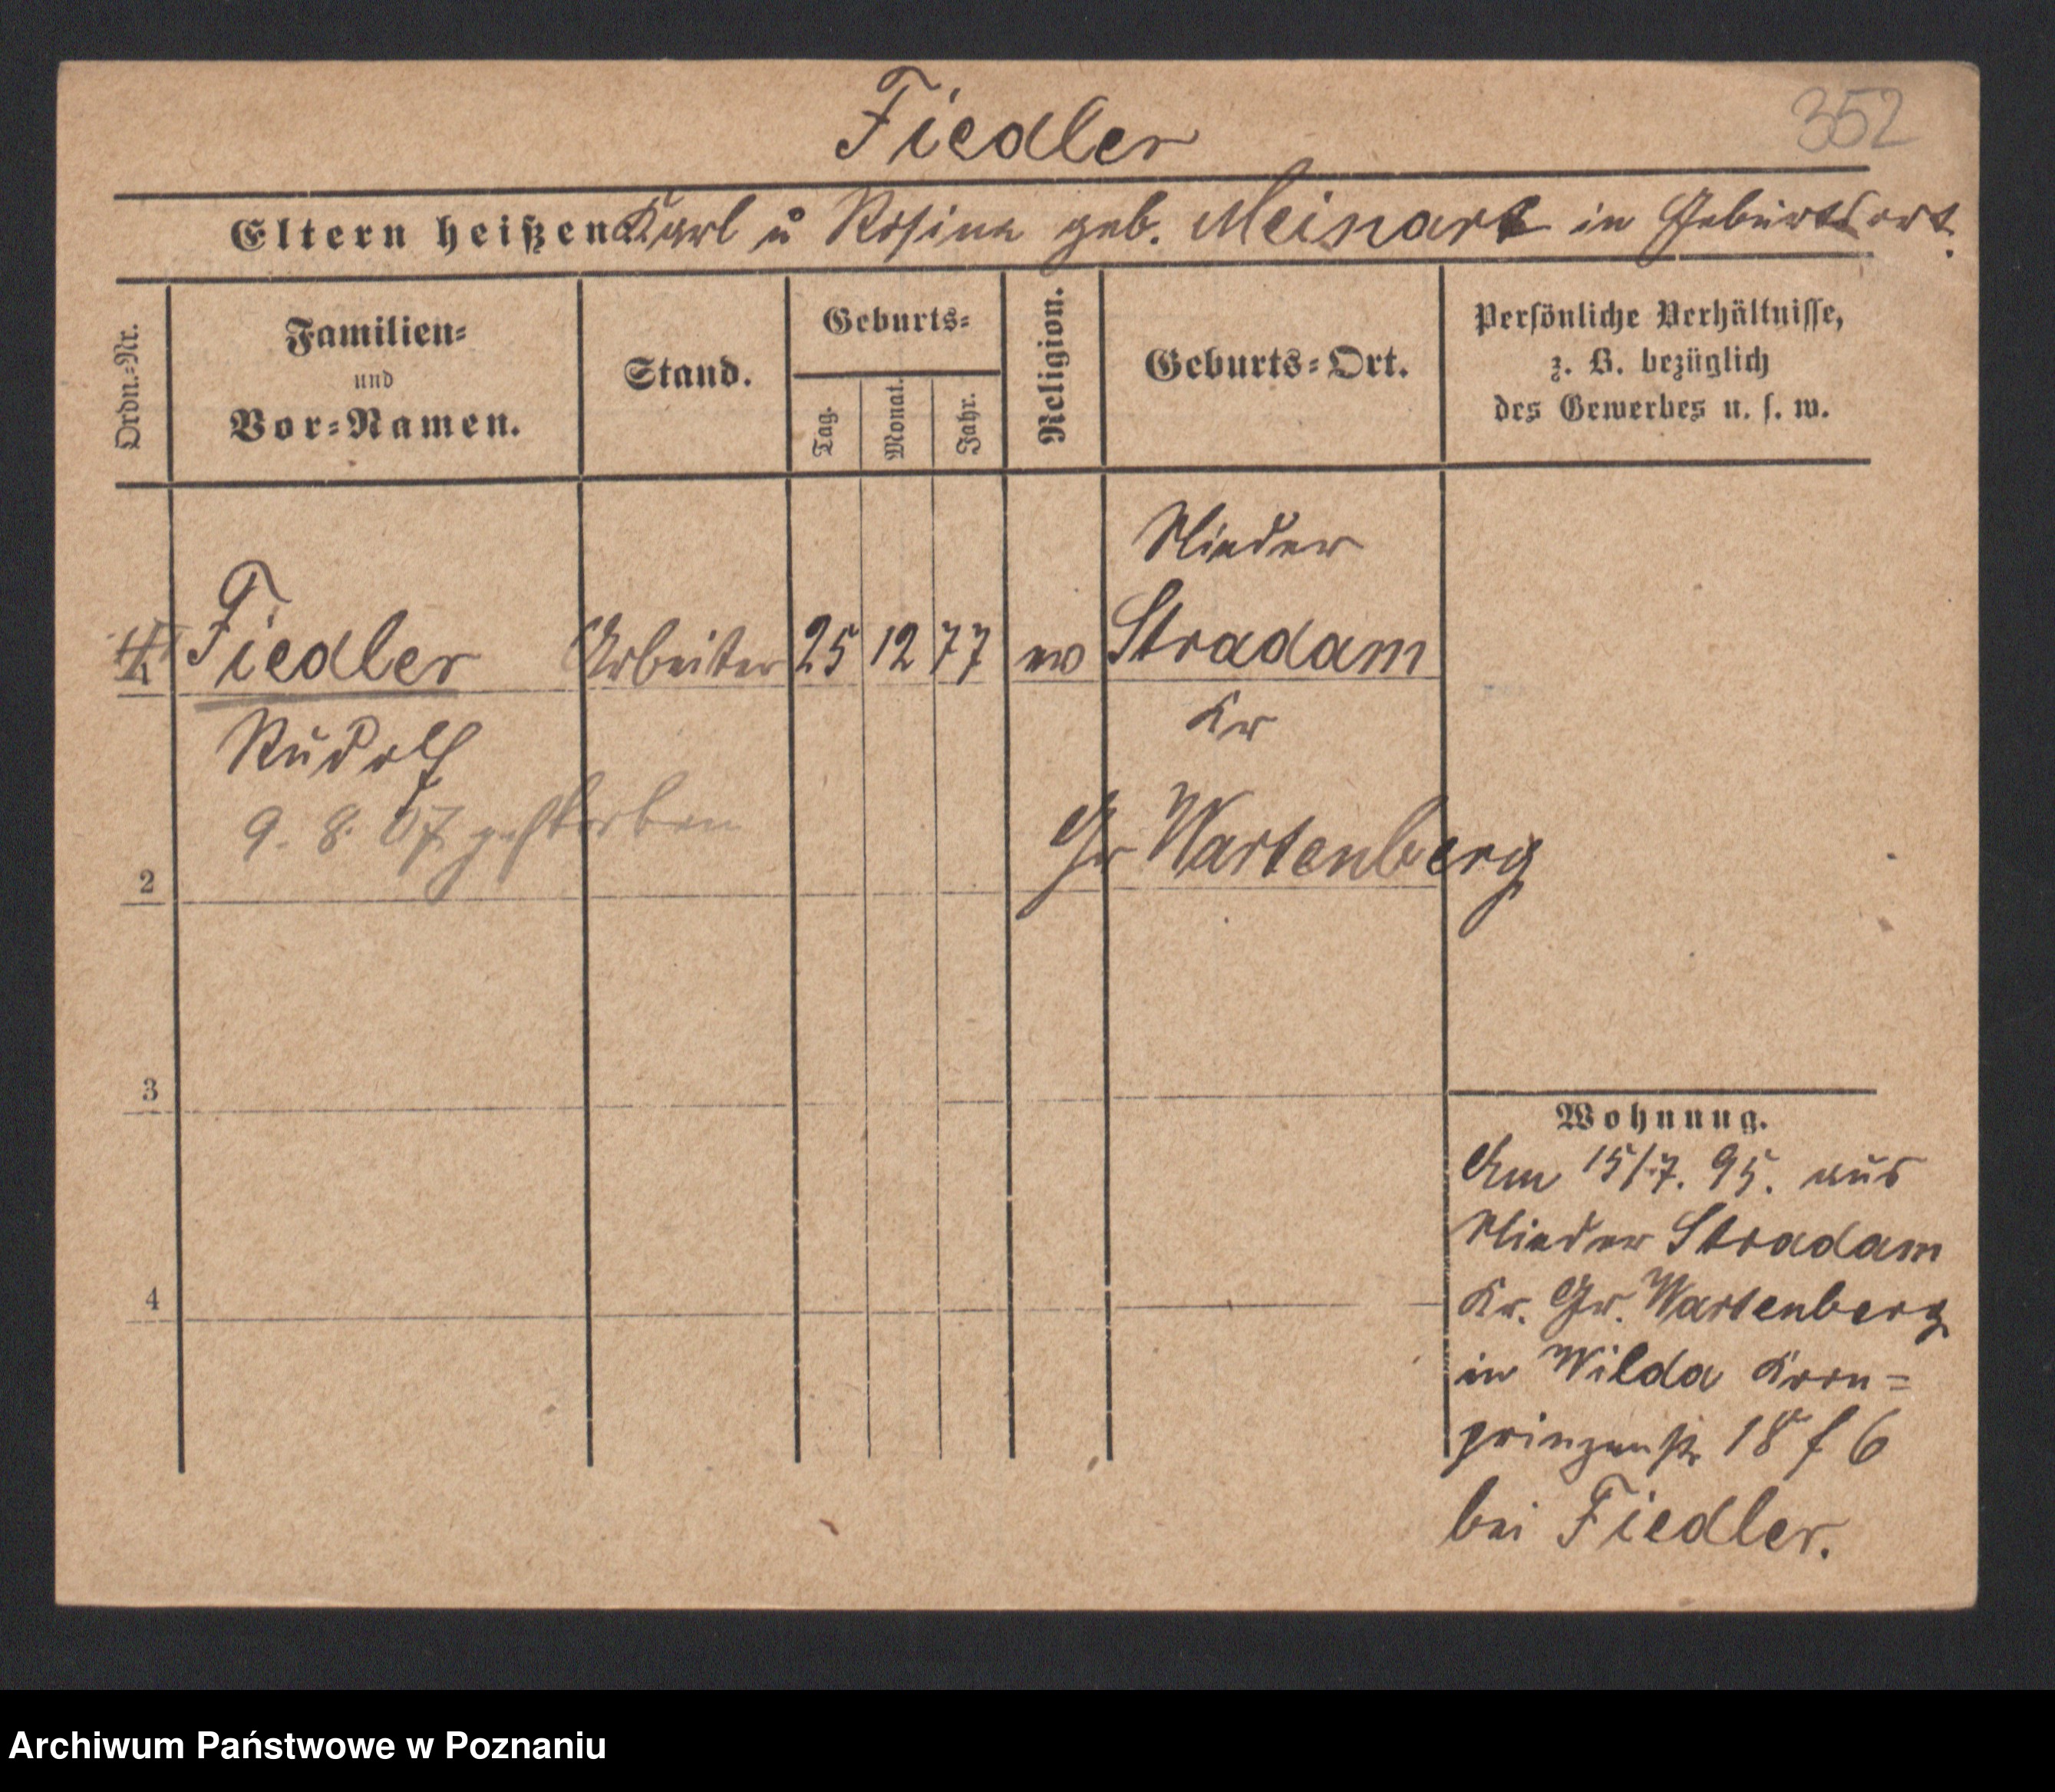 352
Fiedler
Eltern heißen Karl u Rosina geb. Meinart in Geburtsort.
Ordn.=Nr.
Familien=
und
Vor=Namen.
Stand.
Geburts=
Tag.
Monat.
Jahr.
Religion.
Geburts=Ort.
Persönliche Verhältnisse,
z. B. bezüglich
des Gewerbes u. s. w.
Nieder
Fiedler Arbeiter 25 12 77 ev Stradam
Rudolf Kr
9. 8. 07 gestorben Gr Wartenberg
2
3
4
Wohnung.
Am 15/7. 95. aus
Nieder Stradam
Kr. Gr. Wartenberg
in Wilda Kron=
prinzenstr 18 f 6
bei Fiedler.
Archiwum Państwowe w Poznaniu